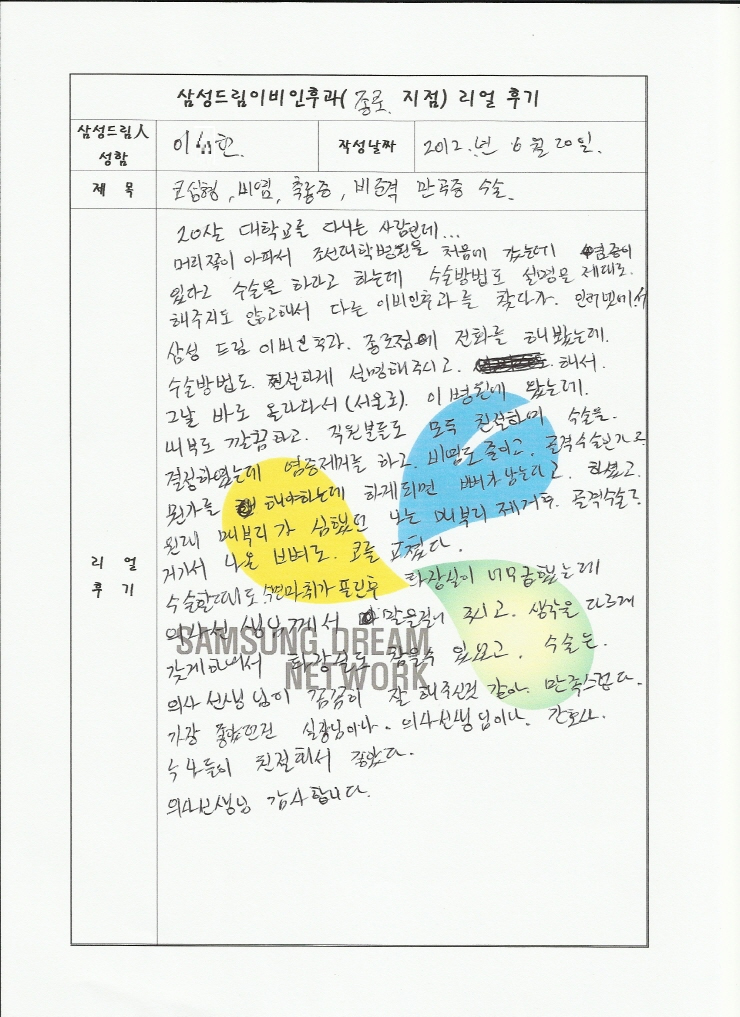 삼성드림이비인후과( 종로 지점) 리얼 후기
삼성드림人
성함
이 현
작성날짜
2012.년 6월 20일.
제 목
코성형, 비염, 축농증, 비중격 만곡증 수술.
리 얼
후 기
20살 대학교를 다니는 사람인데...
머리쪽이 아파서 조선대학병원을 처음에 갔는데 염증이
있다고 수술을 하라고 하는데 수술방법도 설명을 제대로.
해주지도 않고해서 다른 이비인후과를 찾다가. 인터넷에서
삼성 드림 이비인후과. 종로점에 전화를 해봤는데.
수술방법도. 친절하게 설명해주시고. 해서.
그날 바로 올라와서 (서울로). 이 병원에 왔는데.
내부도 깔끔하고. 직원분들도 모두 친절하며 수술을.
결정하였는데 염증제거를 하고. 비염도 줄이고. 골격수술인가
뭔가를 해야하는데 하게되면 뼈가 남는다고. 하셨고.
원래 매부리가 심했던 나는 매부리 제거후. 골격수술
거기서 나온 뼈로. 코를 고쳤다.
수술할때도 수면마취가 풀린후 화장실이 너무급했는데
의사선생님께서 말을걸어 주시고. 생각을 다르게
갖게하셔서 화장실도 참을수 있었고. 수술은.
의사 선생님이 꼼꼼히 잘 해주신것 같아. 만족스럽다.
가장 좋았던건 실장님이나. 의사선생님이나. 간호사.
누나들이 친절해서 좋았다.
의사선생님 감사합니다.
SAMSUNG DREAM
NETWORK